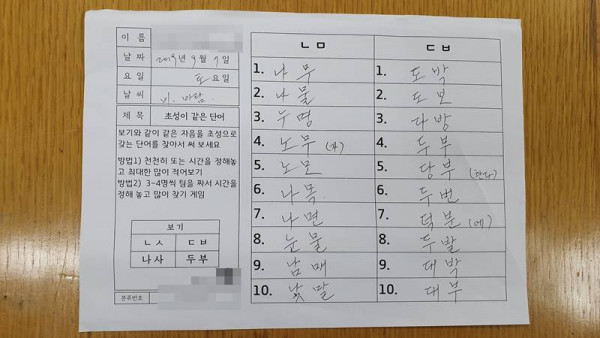 이 름
날 짜 2019년 9월 7일
요 일 토요일
날 씨 비. 바람
제 목 초성이 같은 단어
보기와 같이 같은 자음을 초성으로
갖는 단어를 찾아서 써 보세요
방법1) 천천히 또는 시간을 정해놓
고 최대한 많이 적어보기
방법2) 3~4명씩 팀을 짜서 시간을
정해 놓고 많이 찾기 게임
보기
ㄴㅅ ㄷㅂ
나사 두부
분류번호
ㄴㅁ ㄷㅂ
1. 나무 1. 도박
2. 나물 2. 도보
3. 누명 3. 다방
4. 노무(자) 4. 두부
5. 노모 5. 당부(한다)
6. 나목 6. 두번
7. 나면 7. 덕분(에)
8. 눈물 8. 두발
9. 남매 9. 대박
10. 낱말 10. 대부